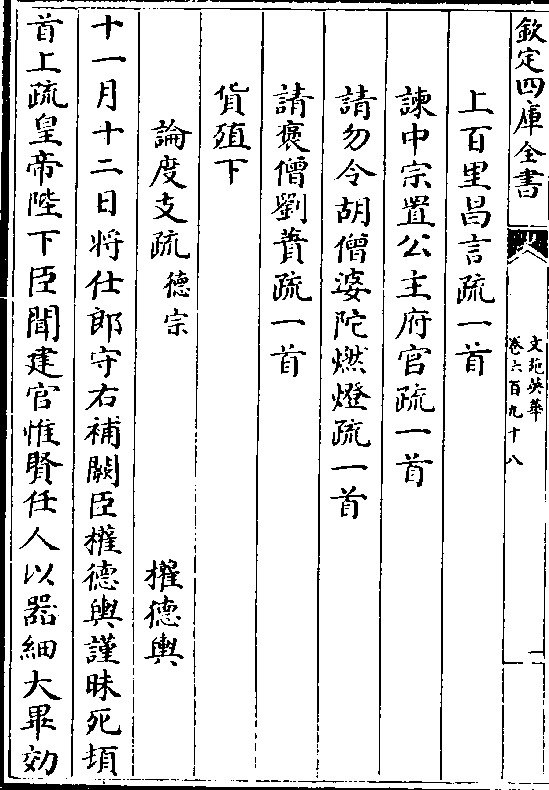 欽定四庫全書
文苑英華
卷六百九十八
上百里昌言疏一首
諫中宗置公主府官疏一首
請勿令胡僧婆陀燃燈疏一首
請褒僧劉蕡疏一首
貨殖下
論度支疏德宗 權德輿
十一月十二日將仕郎守右補闕臣權德輿謹昧死頓
首上疏皇帝陛下臣聞建官惟賢任人以器細大畢効